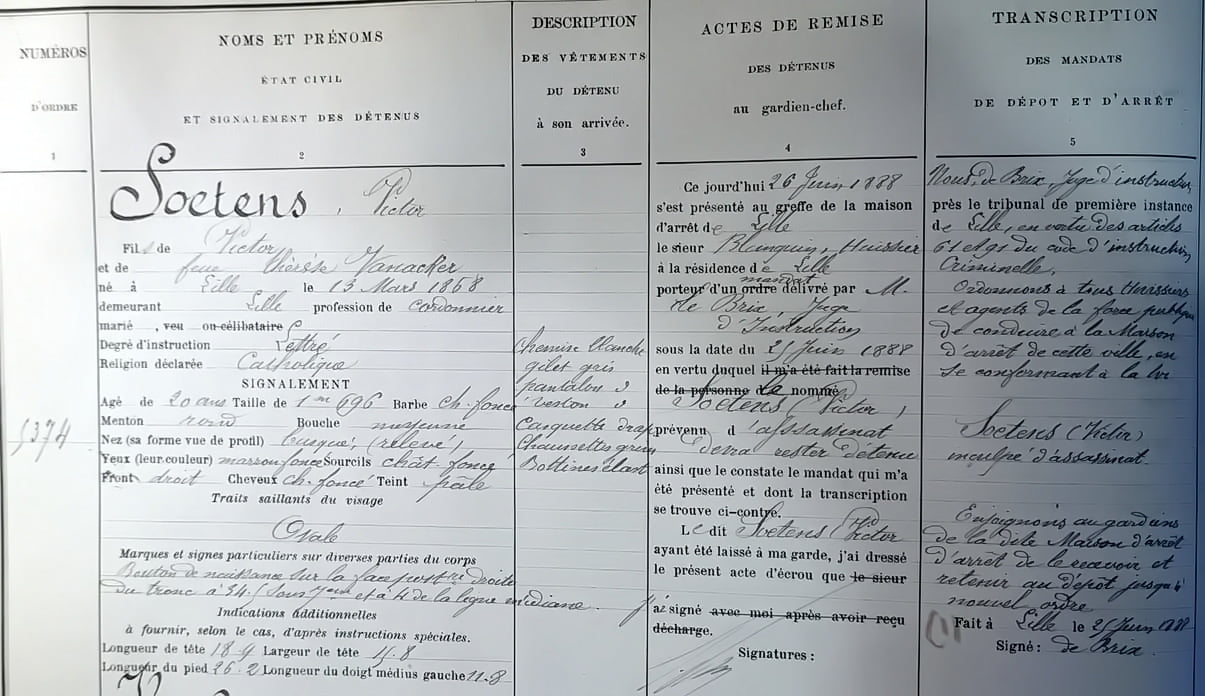 NUMÉROS
D'ORDRE
1
5374
NOMS ET PRÉNOMS
ÉTAT CIVIL
ET SIGNALEMENT DES DÉTENUS
2
Soetens, Victor
Fils de Victor
et de feue Thérèse Vanacker
né à Lille le 13 Mars 1868
demeurant Lille profession de cordonnier
marié, veuf ou célibataire C
Degré d'instruction Lettré
Religion déclarée Catholique
SIGNALEMENT
Agé de 20 ans Taille de 1m 696 Barbe ch. foncé
Menton rond Bouche moyenne
Nez (sa forme vue de profil) busqué, (relevé)
Yeux (leur couleur) marron foncé Sourcils chât. foncé
Front droit Cheveux ch. foncé Teint pâle
Traits saillants du visage
Ovale
Marques et signes particuliers sur diverses parties du corps
Bouton de naissance sur la face postre droite
du tronc à 34 (sous 7eme et à 4 de la ligne médiane.
Indications additionnelles
à fournir, selon le cas, d'après instructions spéciales.
Longueur de tête 18-9 Largeur de tête 15.8
Longueur du pied 26.2 Longueur du doigt médius gauche 11.8
DESCRIPTION
DES VÊTEMENTS
DU DÉTENU
à son arrivée.
3
Chemise blanche
gilet gris
pantalon d
veston d
Casquette drap
Chaussettes grises
Bottines élast
ACTES DE REMISE
DES DÉTENUS
au gardien-chef.
4
Ce jourd'hui 26 Juin 1888
s'est présenté au greffe de la maison
d'arrêt de Lille
le sieur Blanquin, Huissier
à la résidence de Lille
mandat
porteur d'un ordre délivré par M.
de Brix, Juge
d'Instruction
sous la date du 25 Juin 1888
en vertu duquel il m'a été fait la remise
de la personne de le nommé
Soetens (Victor)
prévenu d'assassinat
Devra rester détenu
ainsi que le constate le mandat qui m'a
été présenté et dont la transcription
se trouve ci-contre.
Le dit Soetens Victor
ayant été laissé à ma garde, j'ai dressé
le présent acte d'écrou que le sieur
j'ai signé avec moi après avoir reçu
décharge.
Signatures :
TRANSCRIPTION
DES MANDATS
DE DÉPOT ET D'ARRÊT
5
Nous, de Brix, Juge d'instruction
près le tribunal de première instance
de Lille, en vertu des articles
61 et 91 du code d'instruction
Criminelle,
Ordonnons à tous Huissiers
et agents de la force publique
de conduire à la Maison
d'arrêt de cette ville, en
se conformant à la loi
Soetens (Victor)
inculpé d'assassinat.
Enjoignons au gardiens
de la dite Maison d'arrêt
d'arrêt de le recevoir et
retenir au dépôt jusqu'à
nouvel ordre
Fait à Lille le 25 Juin 1888
Signé : de Brix.